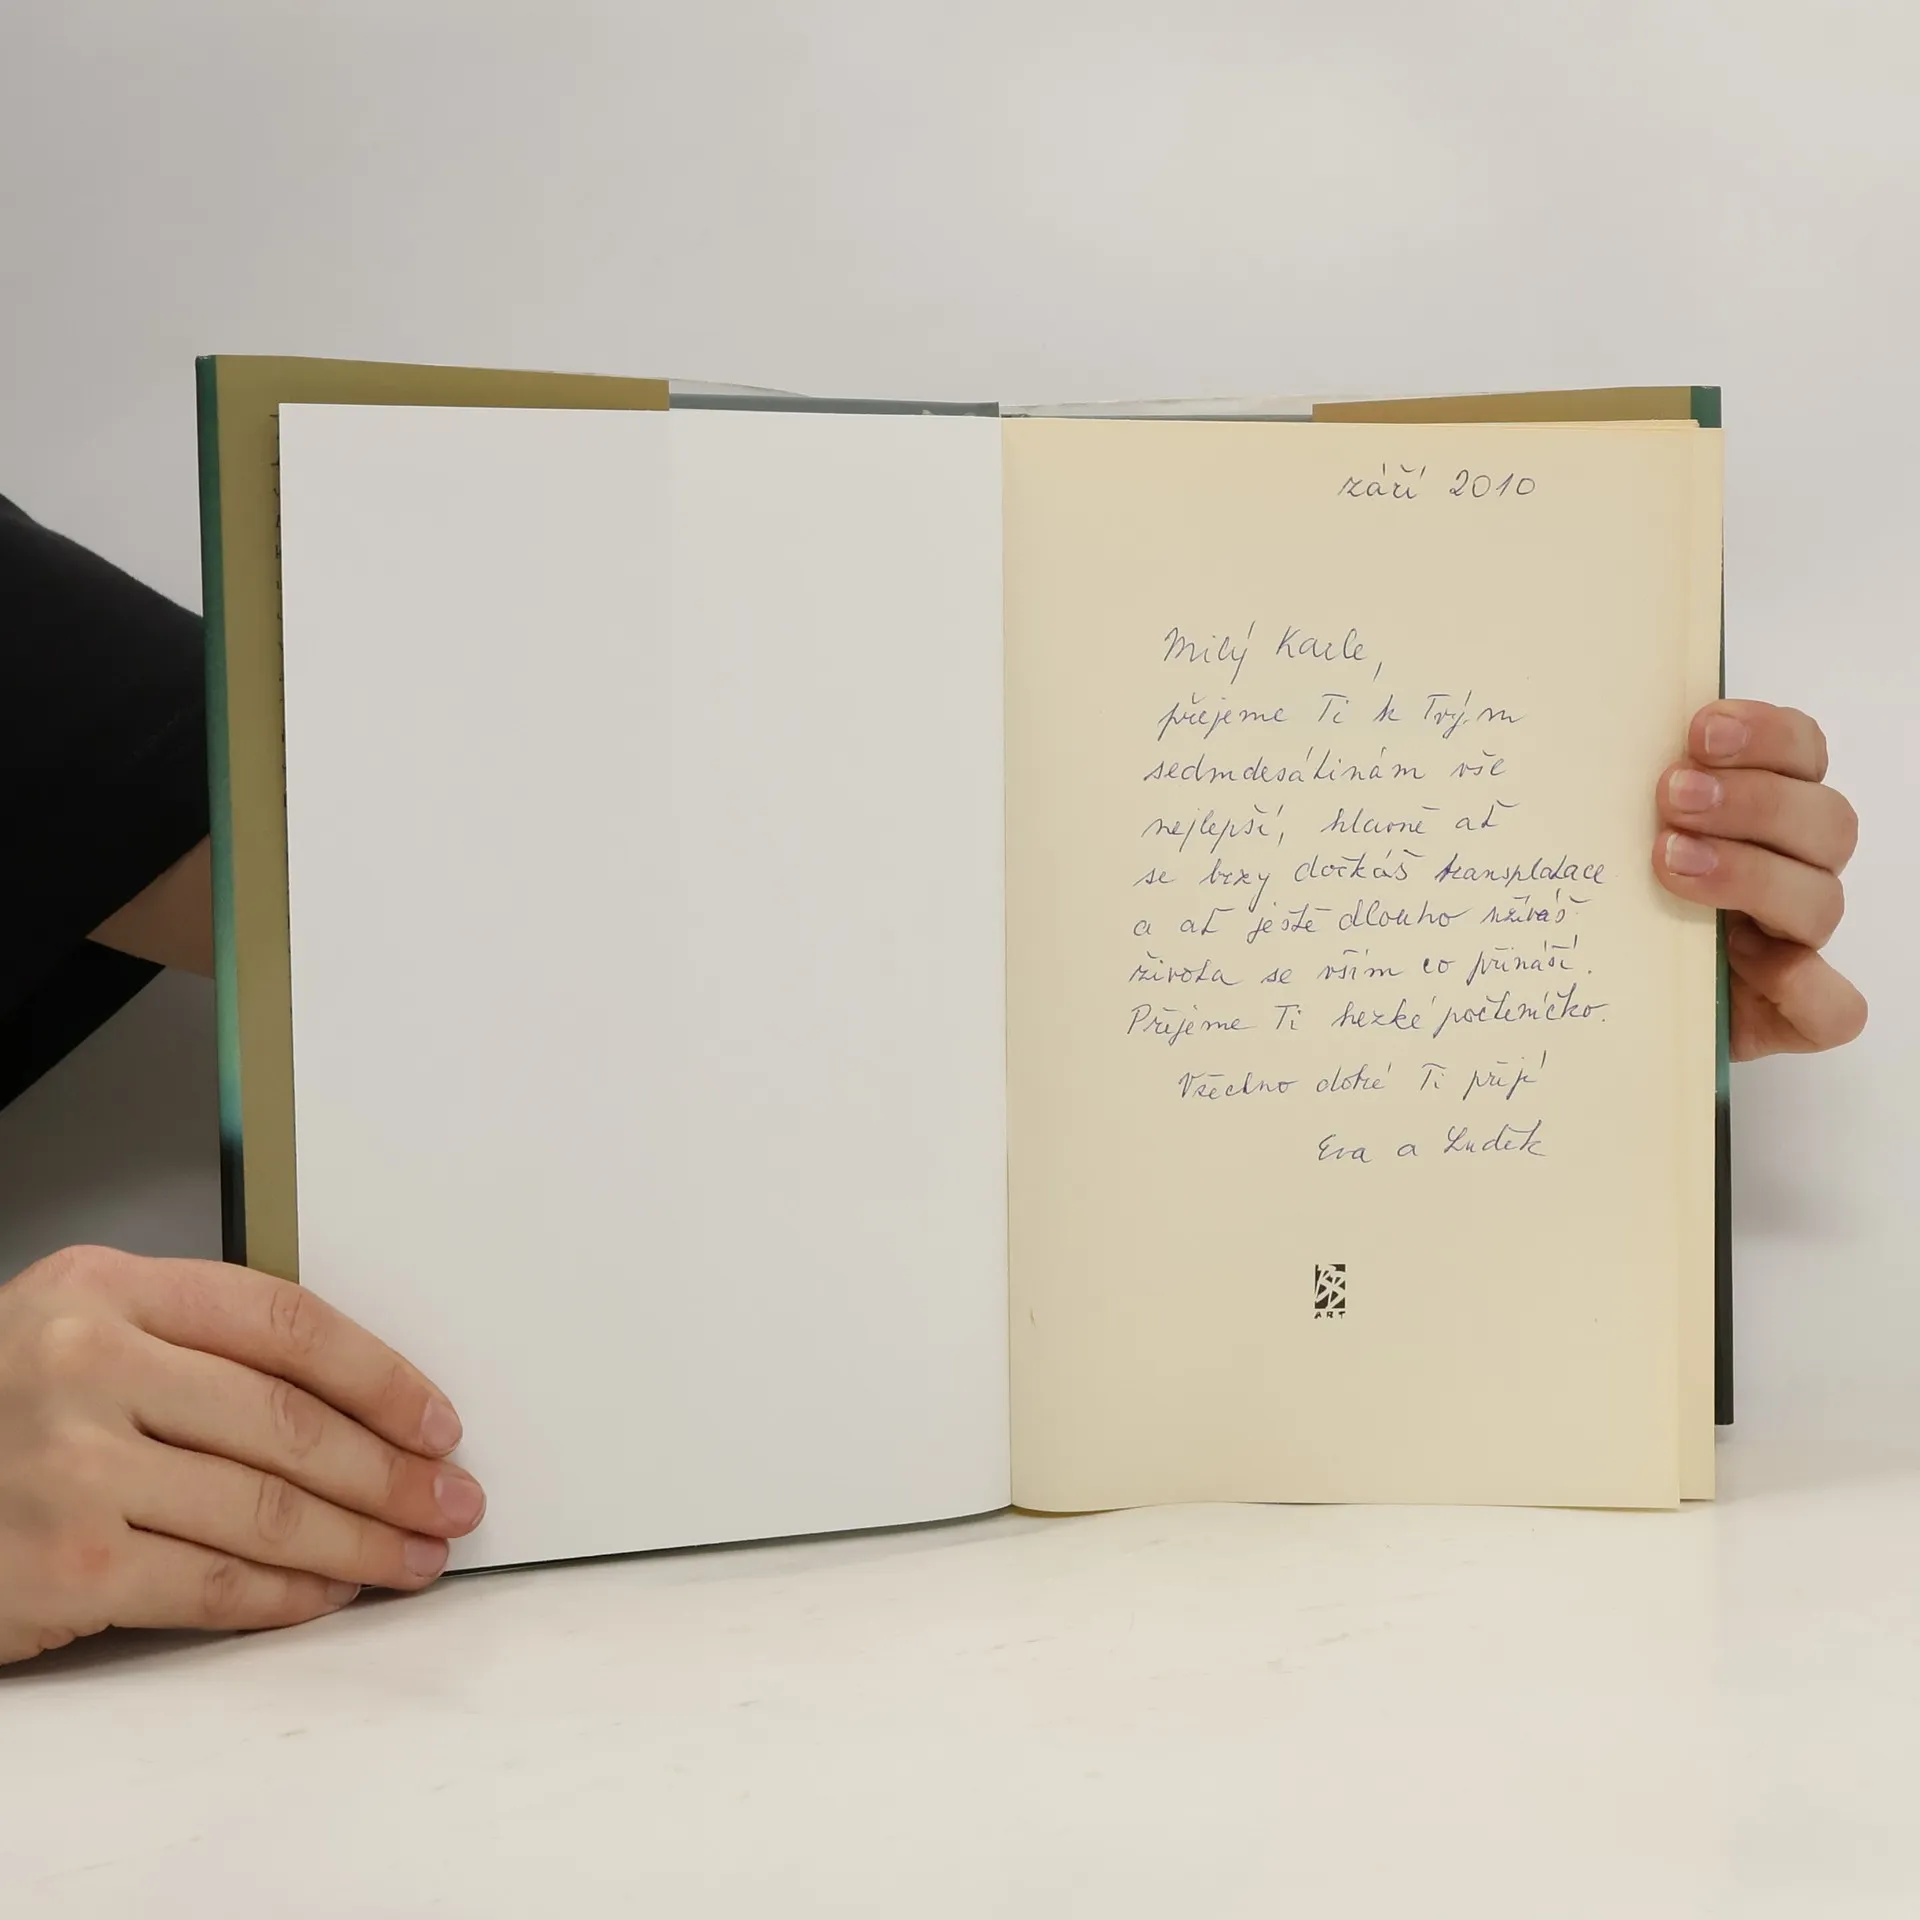 září 2010
Milý Karle,
přejeme Ti k Tvým
sedmdesátinám vše
nejlepší, hlavně ať
se brzy dočkáš transplatace
a ať ještě dlouho užíváš
života se vším co přináší.
Přejeme Ti hezké počteníčko.
Všechno dobré Ti přejí
Eva a Luděk
BB
ART